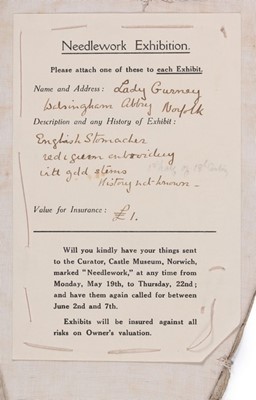 Needlework Exhibition.
Please attach one of these to each Exhibit.
Name and Address : Lady Gurney
Walsingham Abbey Norfolk
Description and any History of Exhibit :
English Stomacher
red & green embroidery
with gold stems
History not known -
Value for Insurance : £1.
Will you kindly have your things sent
to the Curator, Castle Museum, Norwich,
marked "Needlework," at any time from
Monday, May 19th, to Thursday, 22nd ;
and have them again called for between
June 2nd and 7th.
Exhibits will be insured against all
risks on Owner's valuation.